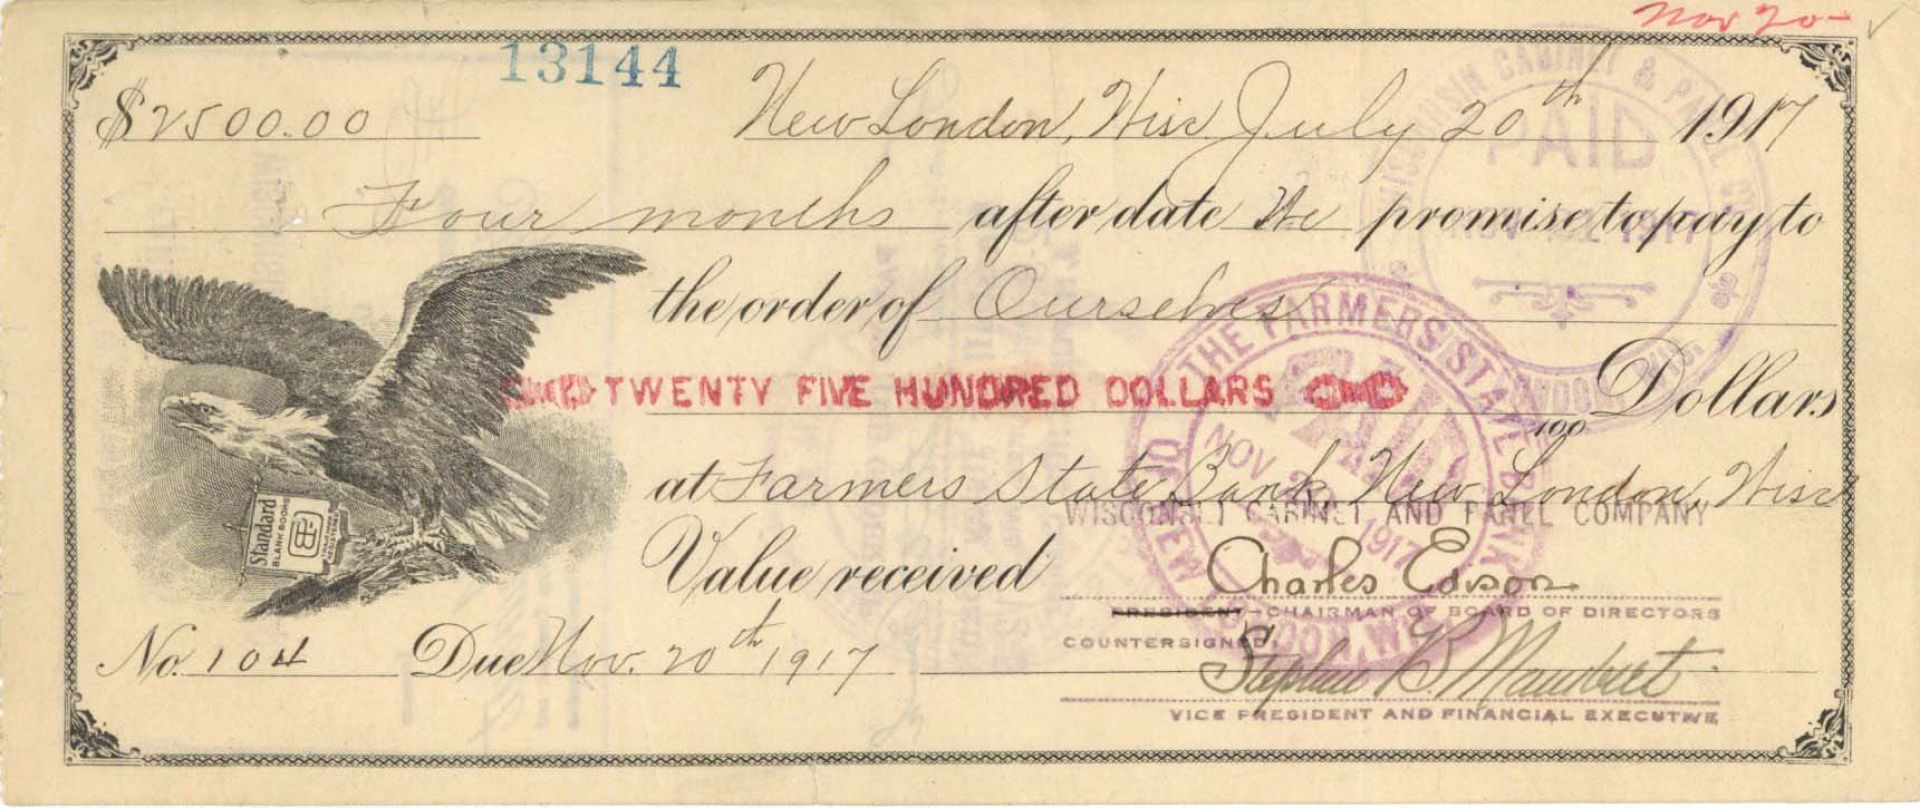 Nov 20-
13144
$2500.00 New London, Wisc. July 20th 1917
Four months after date We promise to pay to
the order of Ourselves
TWENTY FIVE HUNDRED DOLLARS Dollars
100
at Farmers State Bank, New London, Wisc
WISCONSIN CABINET AND PANEL COMPANY
Value received Charles Edison
PRESIDENT-CHAIRMAN OF BOARD OF DIRECTORS
COUNTERSIGNED,
No. 104 Due Nov. 20th 1917 Stephen B. Mambert
VICE PRESIDENT AND FINANCIAL EXECUTIVE
Standard
BLANK BOOKS
WISCONSIN CABINET & PANEL CO.
PAID
NOV 1917
THE FARMERS STATE BANK
PAID
NOV 20 1917
NEW LONDON, WIS.